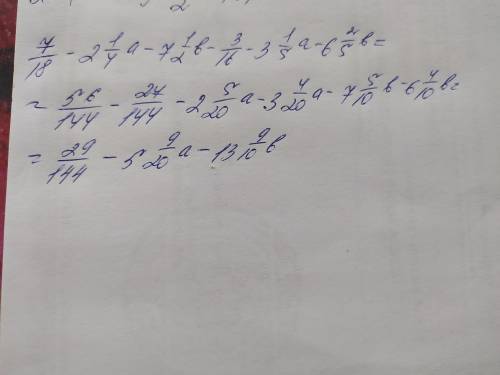 7/18 - 2 1/4 a - 7 1/2 в - 3/16 - 3 1/5 a - 6 2/5 в =
= 56/144 - 27/144 - 2 5/20 a - 3 4/20 a - 7 5/10 в - 6 4/10 в =
= 29/144 - 5 9/20 a - 13 9/10 в